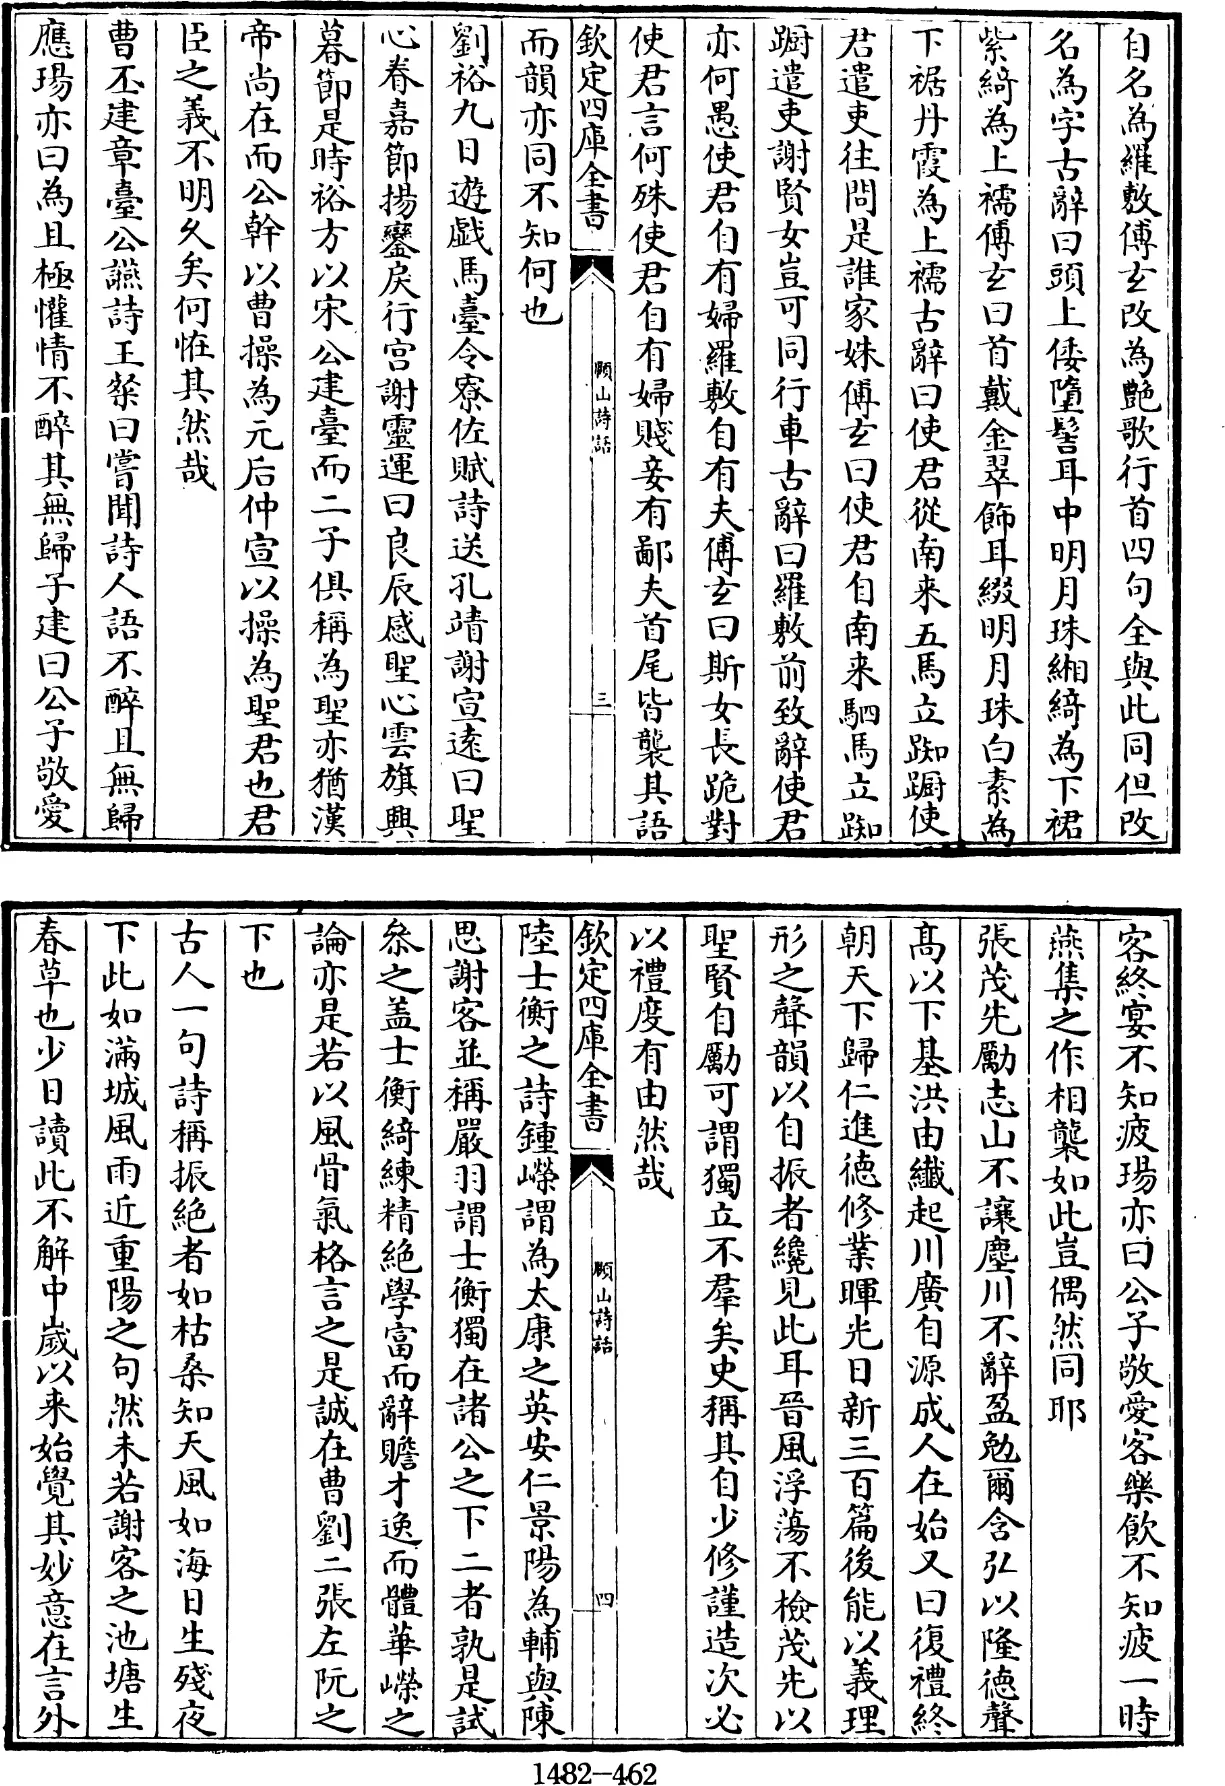 自名為羅敷傅玄改為艶歌行首四句全與此同但改
名為字古辭曰頭上倭墮髻耳中明月珠緗綺為下裙
紫綺為上襦傅玄曰首戴金翠飾耳綴明月珠白素為
下裾丹霞為上襦古辭曰使君從南来五馬立踟蹰使
君遣吏往問是誰家姝傅玄曰使君自南来駟馬立踟
蹰遣吏謝賢女豈可同行車古辭曰羅敷前致辭使君
亦何愚使君自有婦羅敷自有夫傅玄曰斯女長跪對
使君言何殊使君自有婦賤妾有鄙夫首尾皆襲其語
欽定四庫全書
頤山詩話
三
而韻亦同不知何也
劉裕九日遊戲馬臺令寮佐賦詩送孔靖謝宣遠曰聖
心眷嘉節揚鑾戾行宫謝靈運曰良辰感聖心雲旗興
暮節是時裕方以宋公建臺而二子俱稱為聖亦猶漢
帝尚在而公幹以曹操為元后仲宣以操為聖君也君
臣之義不明久矣何恠其然哉
曹丕建章臺公讌詩王粲曰嘗聞詩人語不醉且無歸
應瑒亦曰為且極懽情不醉其無歸子建曰公子敬愛
客終宴不知疲瑒亦曰公子敬愛客樂飲不知疲一時
燕集之作相襲如此豈偶然同耶
張茂先勵志山不讓塵川不辭盈勉爾含弘以隆德聲
髙以下基洪由纎起川廣自源成人在始又曰復禮終
朝天下歸仁進徳修業暉光日新三百篇後能以義理
形之聲韻以自振者纔見此耳晉風浮蕩不檢茂先以
聖賢自勵可謂獨立不羣矣史稱其自少修謹造次必
以禮度有由然哉
欽定四庫全書
頤山詩話
四
陸士衡之詩鍾嶸謂為太康之英安仁景陽為輔與陳
思謝客並稱嚴羽謂士衡獨在諸公之下二者孰是試
叅之盖士衡綺練精絶學富而辭贍才逸而體華嶸之
論亦是若以風骨氣格言之是誠在曹劉二張左阮之
下也
古人一句詩稱振絶者如枯桑知天風如海日生殘夜
下此如滿城風雨近重陽之句然未若謝客之池塘生
春草也少日讀此不解中嵗以来始覺其妙意在言外
1482-462